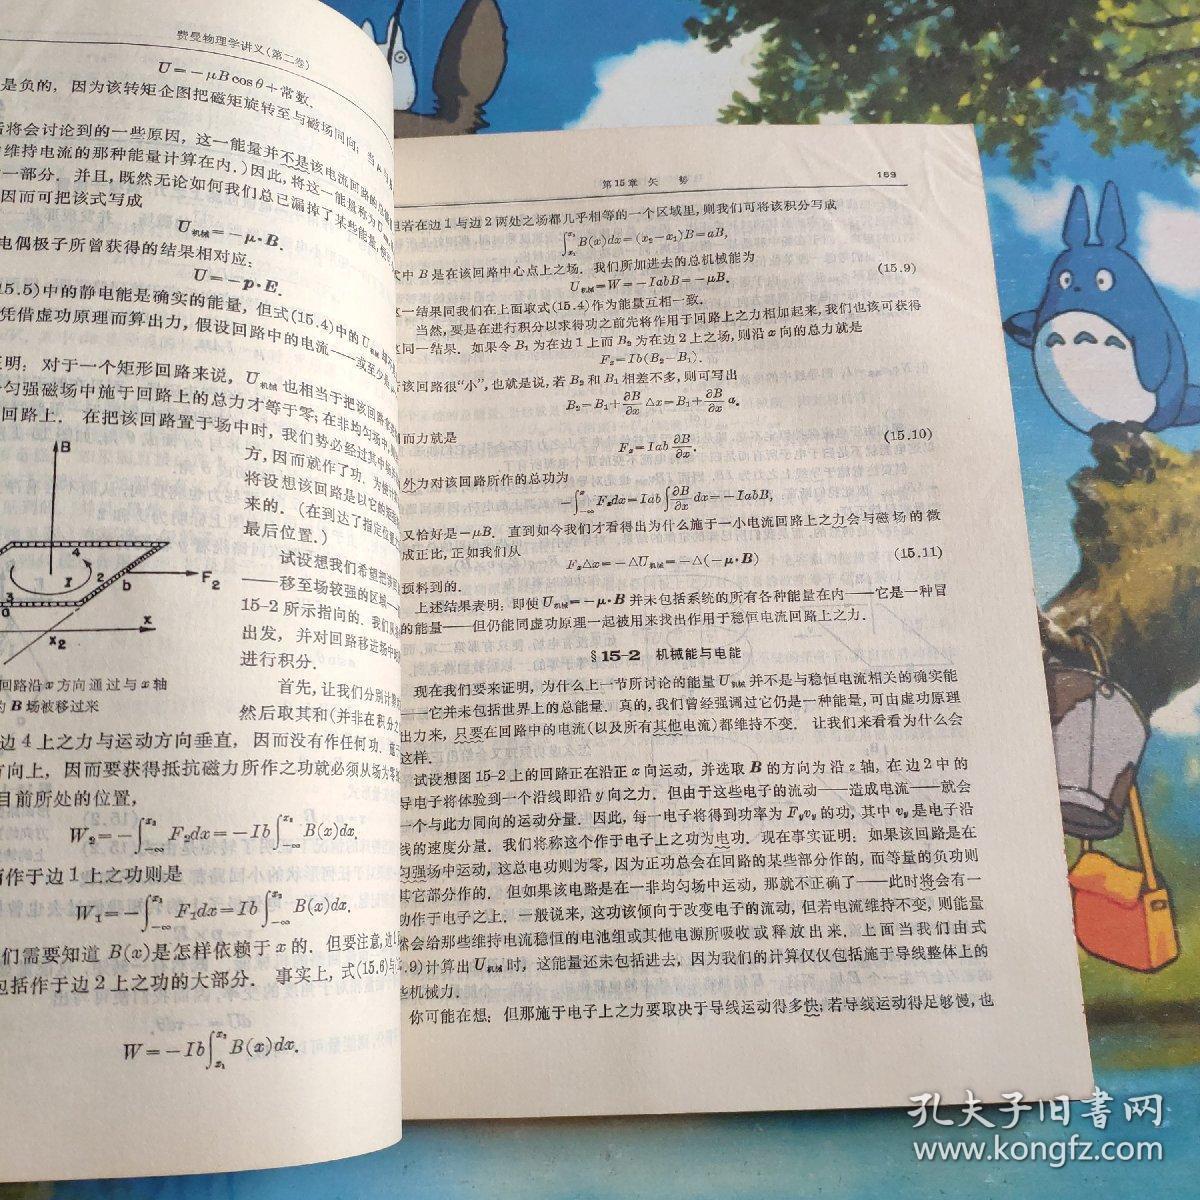 费曼物理学讲义(第二卷)
U=−μBcosθ+常数.
是负的, 因为该转矩企图把磁矩旋转至与磁场同向; 当
将会讨论到的一些原因, 这一能量并不是该电流回路的
维持电流的那种能量计算在内.)因此, 将这一能量称为U
一部分. 并且, 既然无论如何我们总已漏掉了某些能量,
因而可把该式写成
U机械=−μ·B,
电偶极子所曾获得的结果相对应:
U=−p·E.
15.5)中的静电能是确实的能量, 但式(15.4)中的U机械
凭借虚功原理而算出力, 假设回路中的电流——或至少
证明: 对于一个矩形回路来说, U机械也相当于把该回路
匀强磁场中施于回路上的总力才等于零; 在非均匀场中,
回路上. 在把该回路置于场中时, 我们势必经过其中
方, 因而就作了功. 为使计
将设想该回路是以它的
来的. (在到达了指定位
最后位置.)
试设想我们希望把该
——移至场较强的区域
15-2所示指向的. 我们
出发, 并对回路移进场中
进行积分.
首先, 让我们分别计算
然后取其和(并非在积分之
B
4
I
2
3
b
F2
x
x2
回路沿x方向通过与x轴
B场被移过来
边4上之力与运动方向垂直, 因而没有作任何功. 施于
方向上, 因而要获得抵抗磁力所作之功就必须从场为零
目前所处的位置,
W2=−∫−∞^x2 F2dx=−Ib∫−∞^x2 B(x)dx.
作于边1上之功则是
W1=−∫−∞^x1 F1dx=Ib∫−∞^x1 B(x)dx.
们需要知道B(x)是怎样依赖于x的. 但要注意, 边1
包括作于边2上之功的大部分. 事实上, 式(15.6)与(15
W=−Ib∫x1^x2 B(x)dx.
第15章 矢 势 169
但若在边1与边2两处之场都几乎相等的一个区域里, 则我们可将该积分写成
∫x1^x2 B(x)dx=(x2−x1)B=aB,
中B是在该回路中心点上之场. 我们所加进去的总机械能为
U机械=W=−IabB=−μB. (15.9)
这一结果同我们在上面取式(15.4)作为能量互相一致.
当然, 要是在进行积分以求得功之前先将作用于回路上之力相加起来, 我们也该可获得
这同一结果. 如果令B1为在边1上而B2为在边2上之场, 则沿x向的总力就是
Fx=Ib(B2−B1).
若该回路很“小”, 也就是说, 若B2和B1相差不多, 则可写出
B2=B1+∂B/∂x Δx=B1+∂B/∂x a.
而力就是
Fx=Iab ∂B/∂x. (15.10)
外力对该回路所作的总功为
−∫−∞^x Fxdx=Iab∫∂B/∂x dx=−IabB,
又恰好是−μB. 直到如今我们才看得出为什么施于一小电流回路上之力会与磁场的微
成正比, 正如我们从
FxΔx=−ΔU机械=−Δ(−μ·B) (15.11)
预料到的.
上述结果表明: 即使U机械=−μ·B并未包括系统的所有各种能量在内——它是一种冒
的能量——但仍能同虚功原理一起被用来找出作用于稳恒电流回路上之力.
§15-2 机械能与电能
现在我们要来证明, 为什么上一节所讨论的能量U机械并不是与稳恒电流相关的确实能
——它并未包括世界上的总能量. 真的, 我们曾经强调过它仍是一种能量, 可由虚功原理
出力来, 只要在回路中的电流(以及所有其他电流)都维持不变. 让我们来看看为什么会
这样.
试设想图15-2上的回路正在沿正x向运动, 并选取B的方向为沿z轴, 在边2中的
导电子将体验到一个沿线即沿y向之力. 但由于这些电子的流动——造成电流——就会
一个与此力同向的运动分量. 因此, 每一电子将得到功率为Fyvy的功, 其中vy是电子沿
线的速度分量. 我们将称这个作于电子上之功为电功. 现在事实证明: 如果该回路是在
匀强场中运动, 这总电功则为零, 因为正功总会在回路的某些部分作的, 而等量的负功则
其它部分作的. 但如果该电路是在一非均匀场中运动, 那就不正确了——此时将会有一
功作于电子之上. 一般说来, 这功该倾向于改变电子的流动, 但若电流维持不变, 则能量
然会给那些维持电流稳恒的电池组或其他电源所吸收或释放出来. 上面当我们由式
.9)计算出U机械时, 这能量还未包括进去, 因为我们的计算仅仅包括施于导线整体上的
些机械力.
你可能在想: 但那施于电子上之力要取决于导线运动得多快; 若导线运动得足够慢, 也
孔夫子旧书网
www.kongfz.com